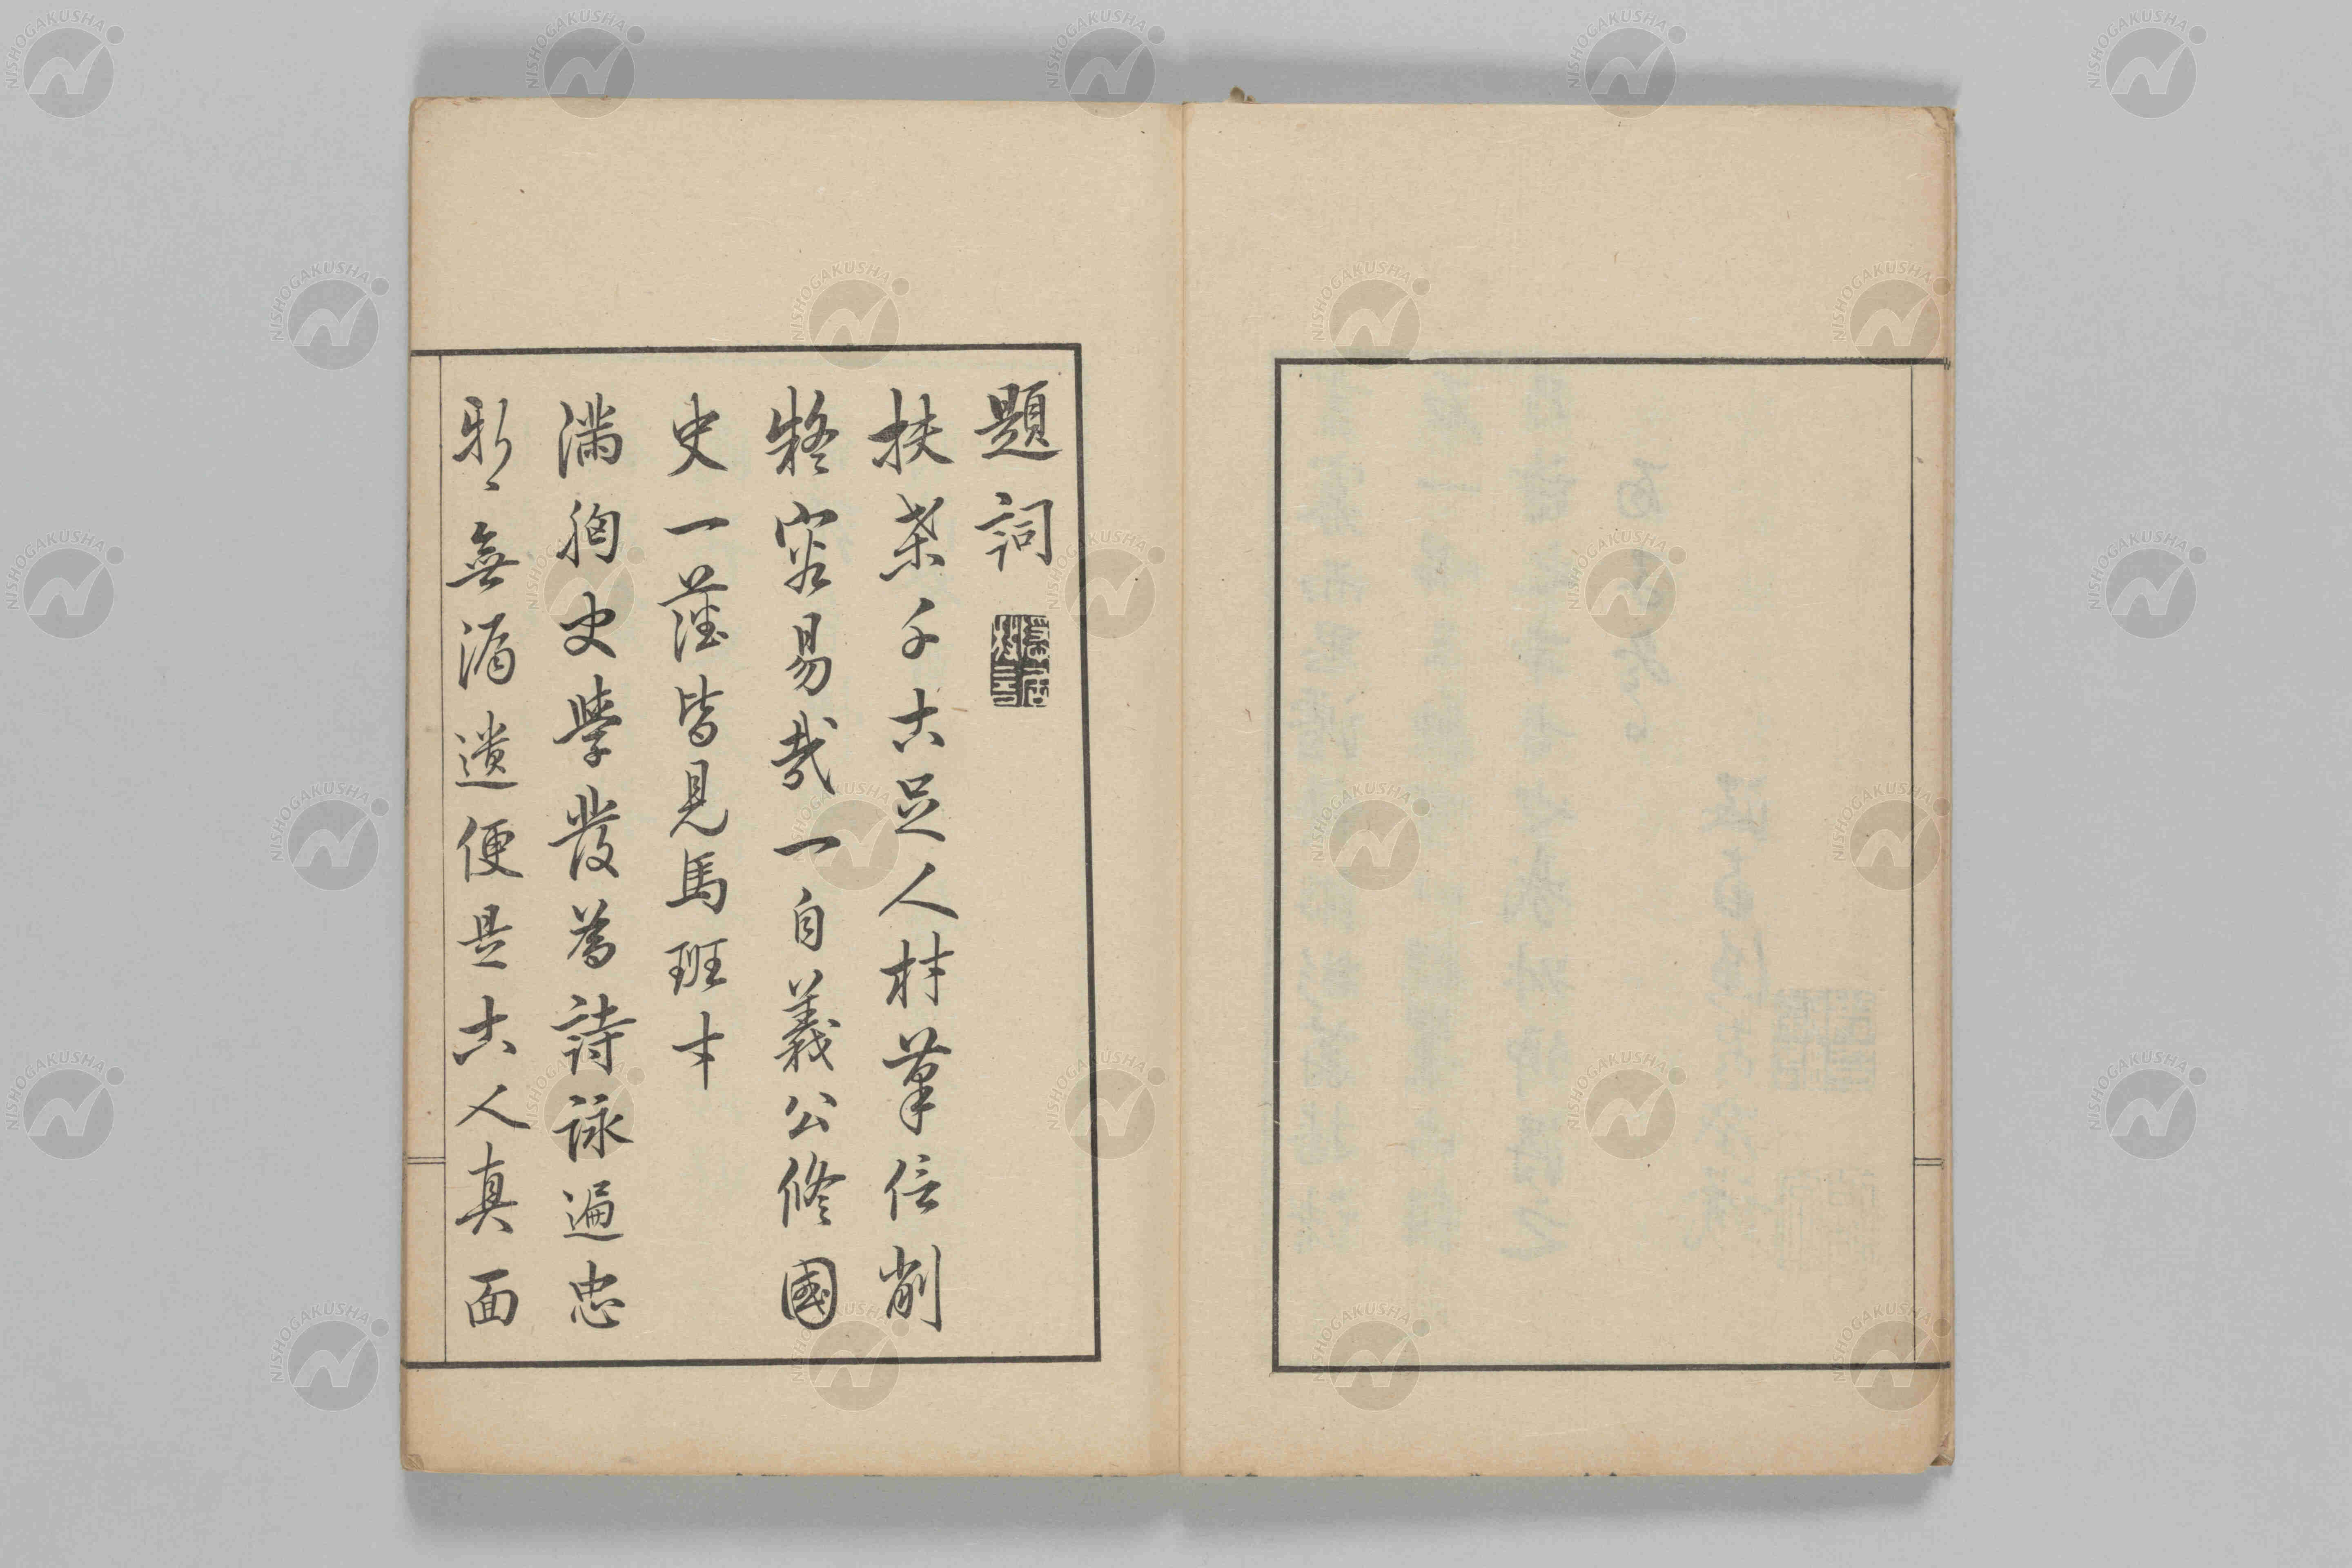 題詞
扶桑千古足人材筆信削
犧容易哉一自義公修國
史一藩皆見馬班才
滿胸史學發爲詩詠遍忠
邪無漏遺便是古人真面
NISHOGAKUSHA